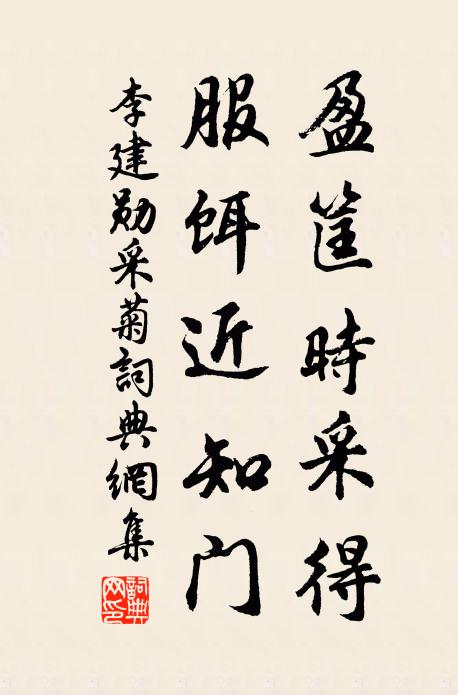 盈筐時采得
服餌近知门
李建勋采菊詞典網集
詞典网印